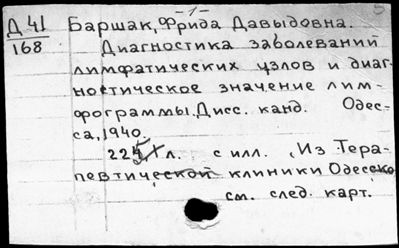 -1-
Д 41 Баршак, Фрида Давыдовна.
168
Диагностика заболеваний
лимфатических узлов и диаг-
ностическое значение лим-
фограммы. Дисс. канд. Одес-
са, 1940.
л. с илл. "Из Тера-
певтической клиники Одесско
см. след. карт.